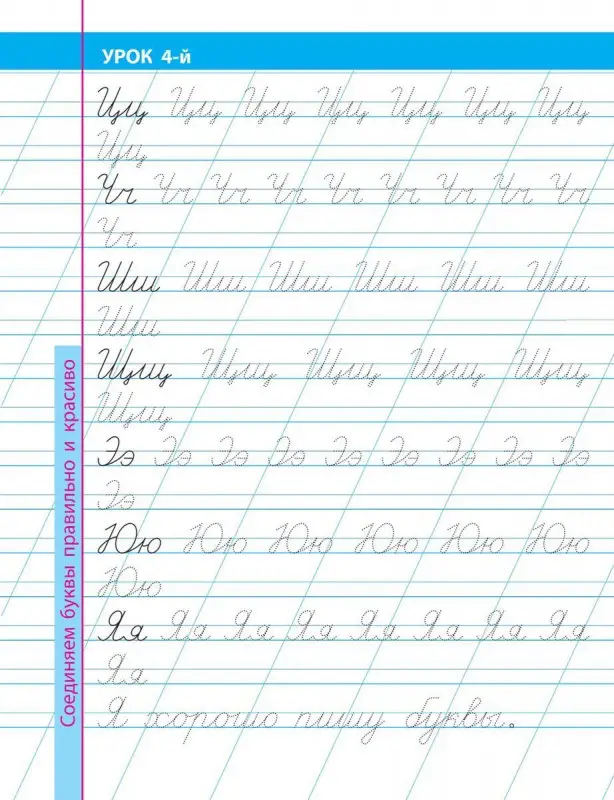 УРОК 4-й
Цц Цц Цц Цц Цц Цц Цц
Цц
Чч Чч Чч Чч Чч Чч Чч Чч Чч
Чч
Шш Шш Шш Шш Шш Шш
Шш
Щщ Щщ Щщ Щщ Щщ
Щщ
Ээ Ээ Ээ Ээ Ээ Ээ Ээ Ээ Ээ
Ээ
Юю Юю Юю Юю Юю Юю
Юю
Яя Яя Яя Яя Яя Яя Яя Яя
Яя
Я хорошо пишу буквы.
Соединяем буквы правильно и красиво